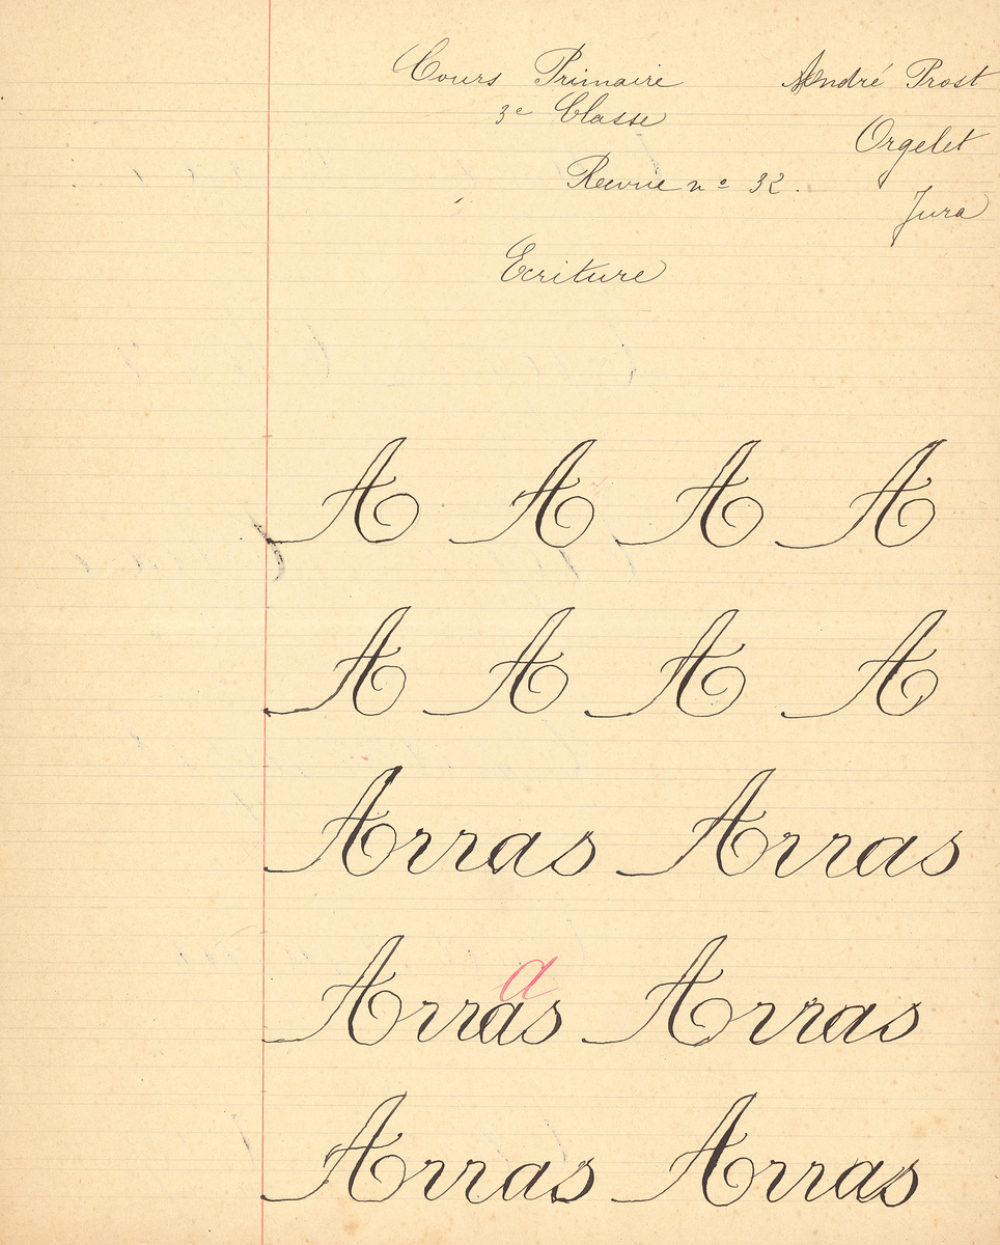 Cours Primaire André Prost
3e Classe
Orgelet
Revue no 32.
Jura
Ecriture
A A A A
A A A A
Arras Arras
a
Arras Arras
Arras Arras